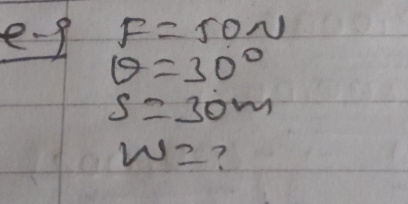 e.g F = 50N
θ = 30°
S = 30m
W = ?